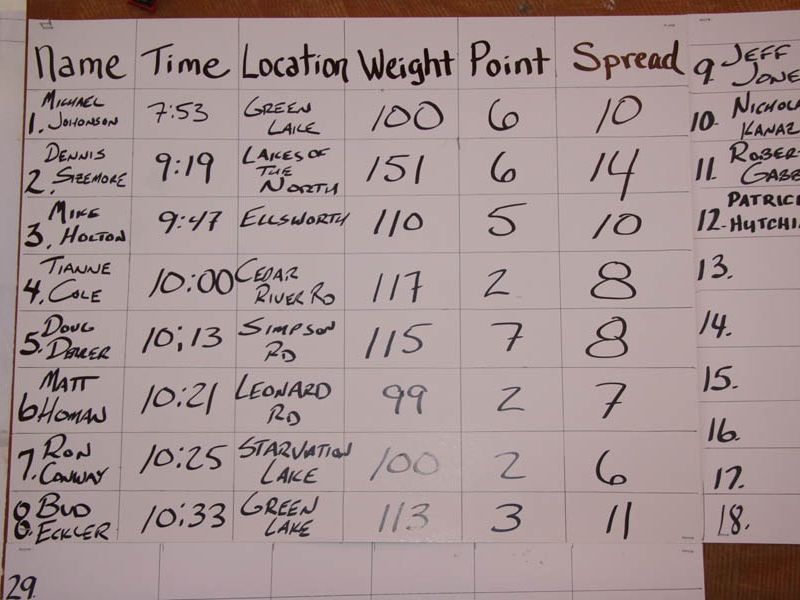 Name Time Location Weight Point Spread
1. MICHAEL JOHONSON 7:53 GREEN LAKE 100 6 10
2. DENNIS SIZEMORE 9:19 LAKES OF THE NORTH 151 6 14
3. MIKE HOLTON 9:47 ELLSWORTH 110 5 10
4. TIANNE COLE 10:00 CEDAR RIVER RD 117 2 8
5. DOUG 10:13 SIMPSON RD 115 7 8
6 MATT HOMAN 10:21 LEONARD RD 99 2 7
7. RON CONWAY 10:25 STARVATION LAKE 100 2 6
8. BUD ECKLER 10:33 GREEN LAKE 113 3 11
29.
9 JEFF JONE
10. NICHOLA KANAZ
11. ROBER GABB
12. PATRICK HUTCHI
13.
14.
15.
16.
17.
18.